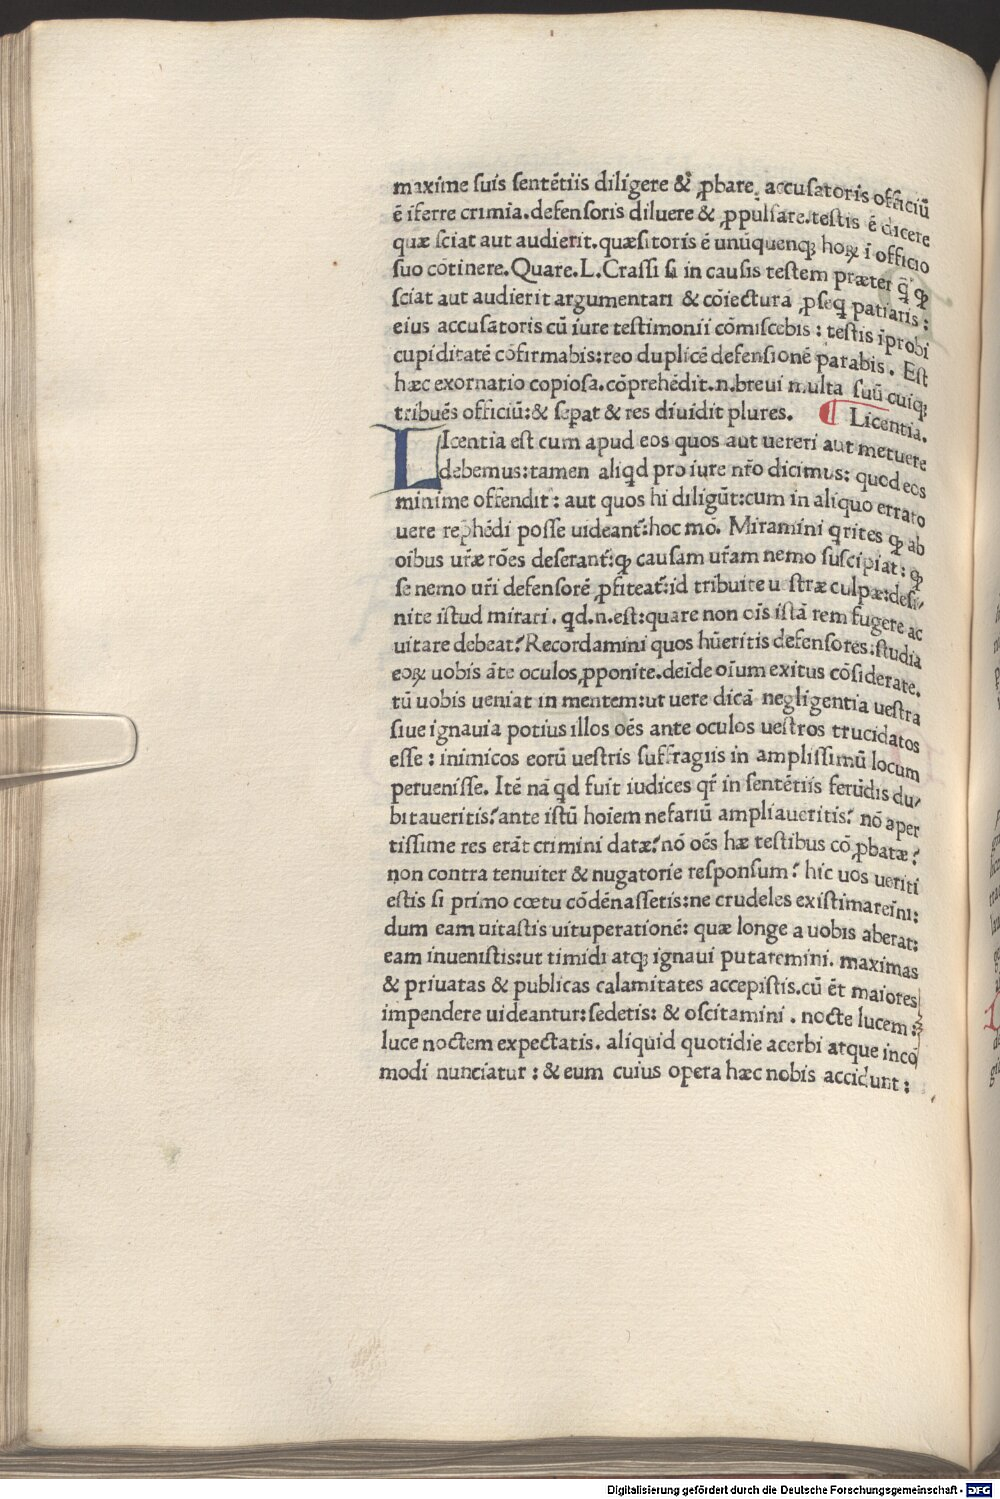 maxime suis sentētiis diligere & ꝓbare. accusatoris officiū
ē iferre crimia. defensoris diluere & ꝓpulsare. testis ē dicere
quæ sciat aut audierit. quæsitoris ē unūquenqꝫ hoꝝ ī officio
suo cōtinere. Quare. L. Crassi si in causis testem præter q̄ ꝙ
sciat aut audierit argumentari & cōiectura ꝓseq patiaris:
eius accusatoris cū iure testimonii cōmiscebis: testis īprobi
cupiditatē cōfirmabis: reo duplicē defensionē parabis. Est
hæc exornatio copiosa. cōprehēdit. n. breui multa suū cuiqꝫ
tribuēs officiū: & sepat & res diuidit plures. ¶ Licentia.
LIcentia est cum apud eos quos aut uereri aut metuere
debemus: tamen aliqd pro iure nr̄o dicimus: quod eos
minime offendit: aut quos hi diligūt: cum in aliquo errato
uere rephēdi posse uideant᷑: hoc mō. Miramini qrites ꝙ ab
oībus ur̄æ rōes deserant᷑: ꝙ causam ur̄am nemo suscipiat: ꝙ
se nemo ur̄i defensorē ꝓfiteat᷑: id tribuite u stræ culpæ: desi/
nite istud mirari. qd. n. est: quare non oīs istā rem fugere ac
uitare debeat? Recordamini quos hūeritis defensores: studia
eoꝝ uobis āte oculos ꝓponite. deīde oīum exitus cōsiderate.
tū uobis ueniat in mentem: ut uere dicā negligentia uestra
siue ignauia potius illos oēs ante oculos uestros trucidatos
esse: inimicos eorū uestris suffragiis in amplissimū locum
peruenisse. Itē nā qd fuit iudices qr̄ in sentētiis ferūdis du/
bitaueritis? ante istū hoīem nefariū ampliaueritis? nō aper
tissime res erāt crimini datæ? nō oēs hæ testibus cō ꝓbatæ?
non contra tenuiter & nugatorie responsum? hic uos ueriti
estis si primo cœtu cōdēnassetis: ne crudeles existimareīni:
dum eam uitastis uituperationē: quæ longe a uobis aberat:
eam inuenistis: ut timidi atqꝫ ignaui putaremini. maximas
& priuatas & publicas calamitates accepistis. cū ēt maiores
impendere uideantur: sedetis: & oscitamini. nocte lucem:
luce noctem expectatis. aliquid quotidie acerbi atque incō
modi nunciatur: & eum cuius opera hæc nobis accidunt:
Digitalisierung gefördert durch die Deutsche Forschungsgemeinschaft - DFG